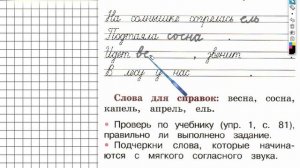 На солнышке грелась ель
Подтаяла сосна .
Идёт ве , звенит
В лесу у нас .
Слова для справок: весна, сосна,
капель, апрель, ель.
• Проверь по учебнику (упр. 1, с. 81),
правильно ли выполнено задание.
• Подчеркни слова, которые начина-
ются с мягкого согласного звука.